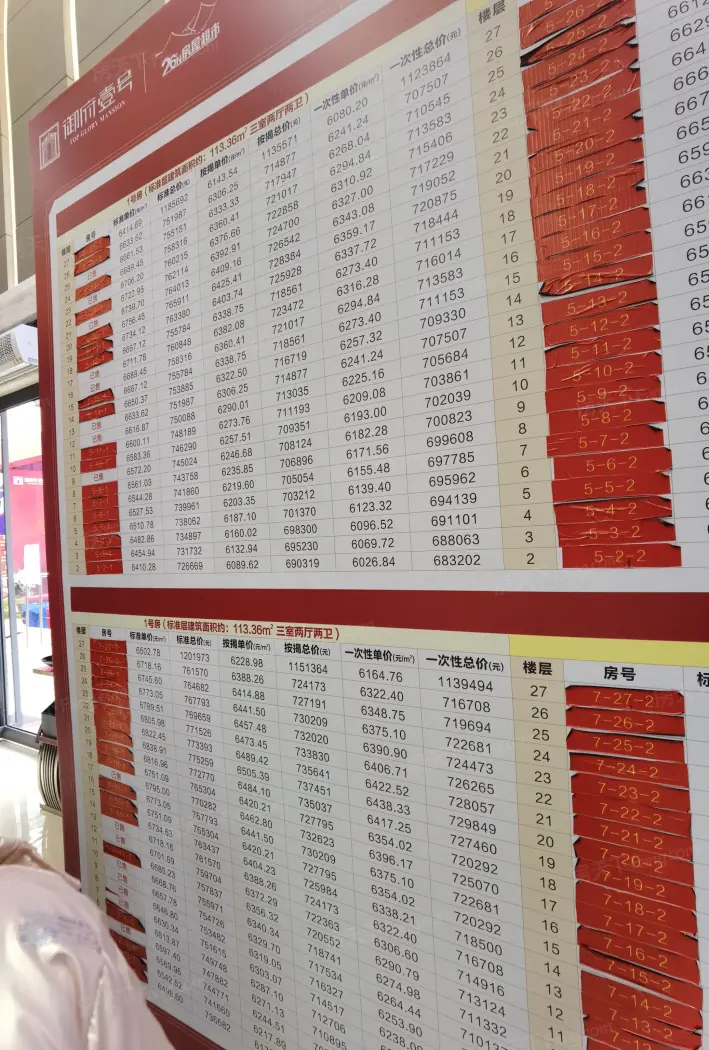 御府壹号
TOP GLORY MANSION
房屋超市
1号房（标准层建筑面积约：113.36m² 三室两厅两卫）
楼层 房号 标准单价(元/m²) 标准总价(元) 按揭单价(元/m²) 按揭总价(元) 一次性单价(元/m²) 一次性总价(元) 楼层
27 6414.69 1185692 6143.54 1135571 6080.20 1123864 27
26 6633.62 751987 6306.25 714877 6241.24 707507 26 5-26-2
25 6661.53 755151 6333.33 717947 6268.04 710545 25 5-25-2
24 6689.45 758316 6360.41 721017 6294.84 713583 24 5-24-2
23 6706.20 760215 6376.66 722858 6310.92 715406 23 5-23-2
22 6722.95 762114 6392.91 724700 6327.00 717229 22 5-22-2
21 6739.70 764013 6409.16 726542 6343.08 719052 21 5-21-2
20 6756.45 765911 6425.41 728384 6359.17 720875 20 5-20-2
19 6734.12 763380 6403.74 725928 6337.72 718444 19 5-19-2
18 6667.12 755784 6338.75 718561 6273.40 711153 18 5-18-2
17 6711.78 760848 6382.08 723472 6316.28 716014 17 5-17-2
16 6689.45 758316 6360.41 721017 6294.84 713583 16 5-16-2
15 6667.12 755784 6338.75 718561 6273.40 711153 15 5-15-2
14 6650.37 753885 6322.50 716719 6257.32 709330 14 5-14-2
13 6633.62 751987 6306.25 714877 6241.24 707507 13 5-13-2
12 6616.87 750088 6290.01 713035 6225.16 705684 12 5-12-2
11 6600.11 748189 6273.76 711193 6209.08 703861 11 5-11-2
10 6583.36 746290 6257.51 709351 6193.00 702039 10 5-10-2
9 6572.20 745024 6246.68 708124 6182.28 700823 9 5-9-2
8 6561.03 743758 6235.85 706896 6171.56 699608 8 5-8-2
7 6544.28 741860 6219.60 705054 6155.48 697785 7 5-7-2
6 6527.53 739961 6203.35 703212 6139.40 695962 6 5-6-2
5 6510.78 738062 6187.10 701370 6123.32 694139 5 5-5-2
4 6482.86 734897 6160.02 698300 6096.52 691101 4 5-4-2
3 6454.94 731732 6132.94 695230 6069.72 688063 3 5-3-2
2 5-2-1 6410.28 726669 6089.62 690319 6026.84 683202 2 5-2-2
1号房（标准层建筑面积约：113.36m² 三室两厅两卫）
楼层 房号 标准单价(元/m²) 标准总价(元) 按揭单价(元/m²) 按揭总价(元) 一次性单价(元/m²) 一次性总价(元) 楼层 房号
27 7-27-1 6502.78 1201973 6228.98 1151364 6164.76 1139494 27 7-27-2
26 6718.16 761570 6388.26 724173 6322.40 716708 26 7-26-2
25 6745.60 764682 6414.88 727191 6348.75 719694 25 7-25-2
24 6773.05 767793 6441.50 730209 6375.10 722681 24 7-24-2
23 6789.51 769659 6457.48 732020 6390.90 724473 23 7-23-2
22 6805.98 771526 6473.45 733830 6406.71 726265 22 7-22-2
21 6822.45 773393 6489.42 735641 6422.52 728057 21 7-21-2
20 6838.91 775259 6505.39 737451 6438.33 729849 20 7-20-2
19 6816.96 772770 6484.10 735037 6417.25 727460 19 7-19-2
18 6751.09 765304 6420.21 727795 6354.02 720292 18 7-18-2
17 6795.00 770282 6462.80 732623 6396.17 725070 17 7-17-2
16 6773.05 767793 6441.50 730209 6375.10 722681 16 7-16-2
15 6751.09 765304 6420.21 727795 6354.02 720292 15 7-15-2
14 6734.63 763437 6404.23 725984 6338.21 718500 14 7-14-2
13 6718.16 761570 6388.26 724173 6322.40 716708 13 7-13-2
12 6701.69 759704 6372.29 722363 6306.60 714916 12
11 6685.23 757837 6356.32 720552 6290.79 713124 11
6668.76 755971 6340.34 718741 6274.98 711332
6657.78 754726 6329.70 717534 6264.44
6646.80 753482 6319.05 716327 6253.90
6630.34 751615 6303.07 714517 6238.09
6613.87 749748 6287.10 712706
6597.40 747882 6271.13 710895
6569.96 744771 6244.51
6542.52 741660 6217.89
6498.60 736682